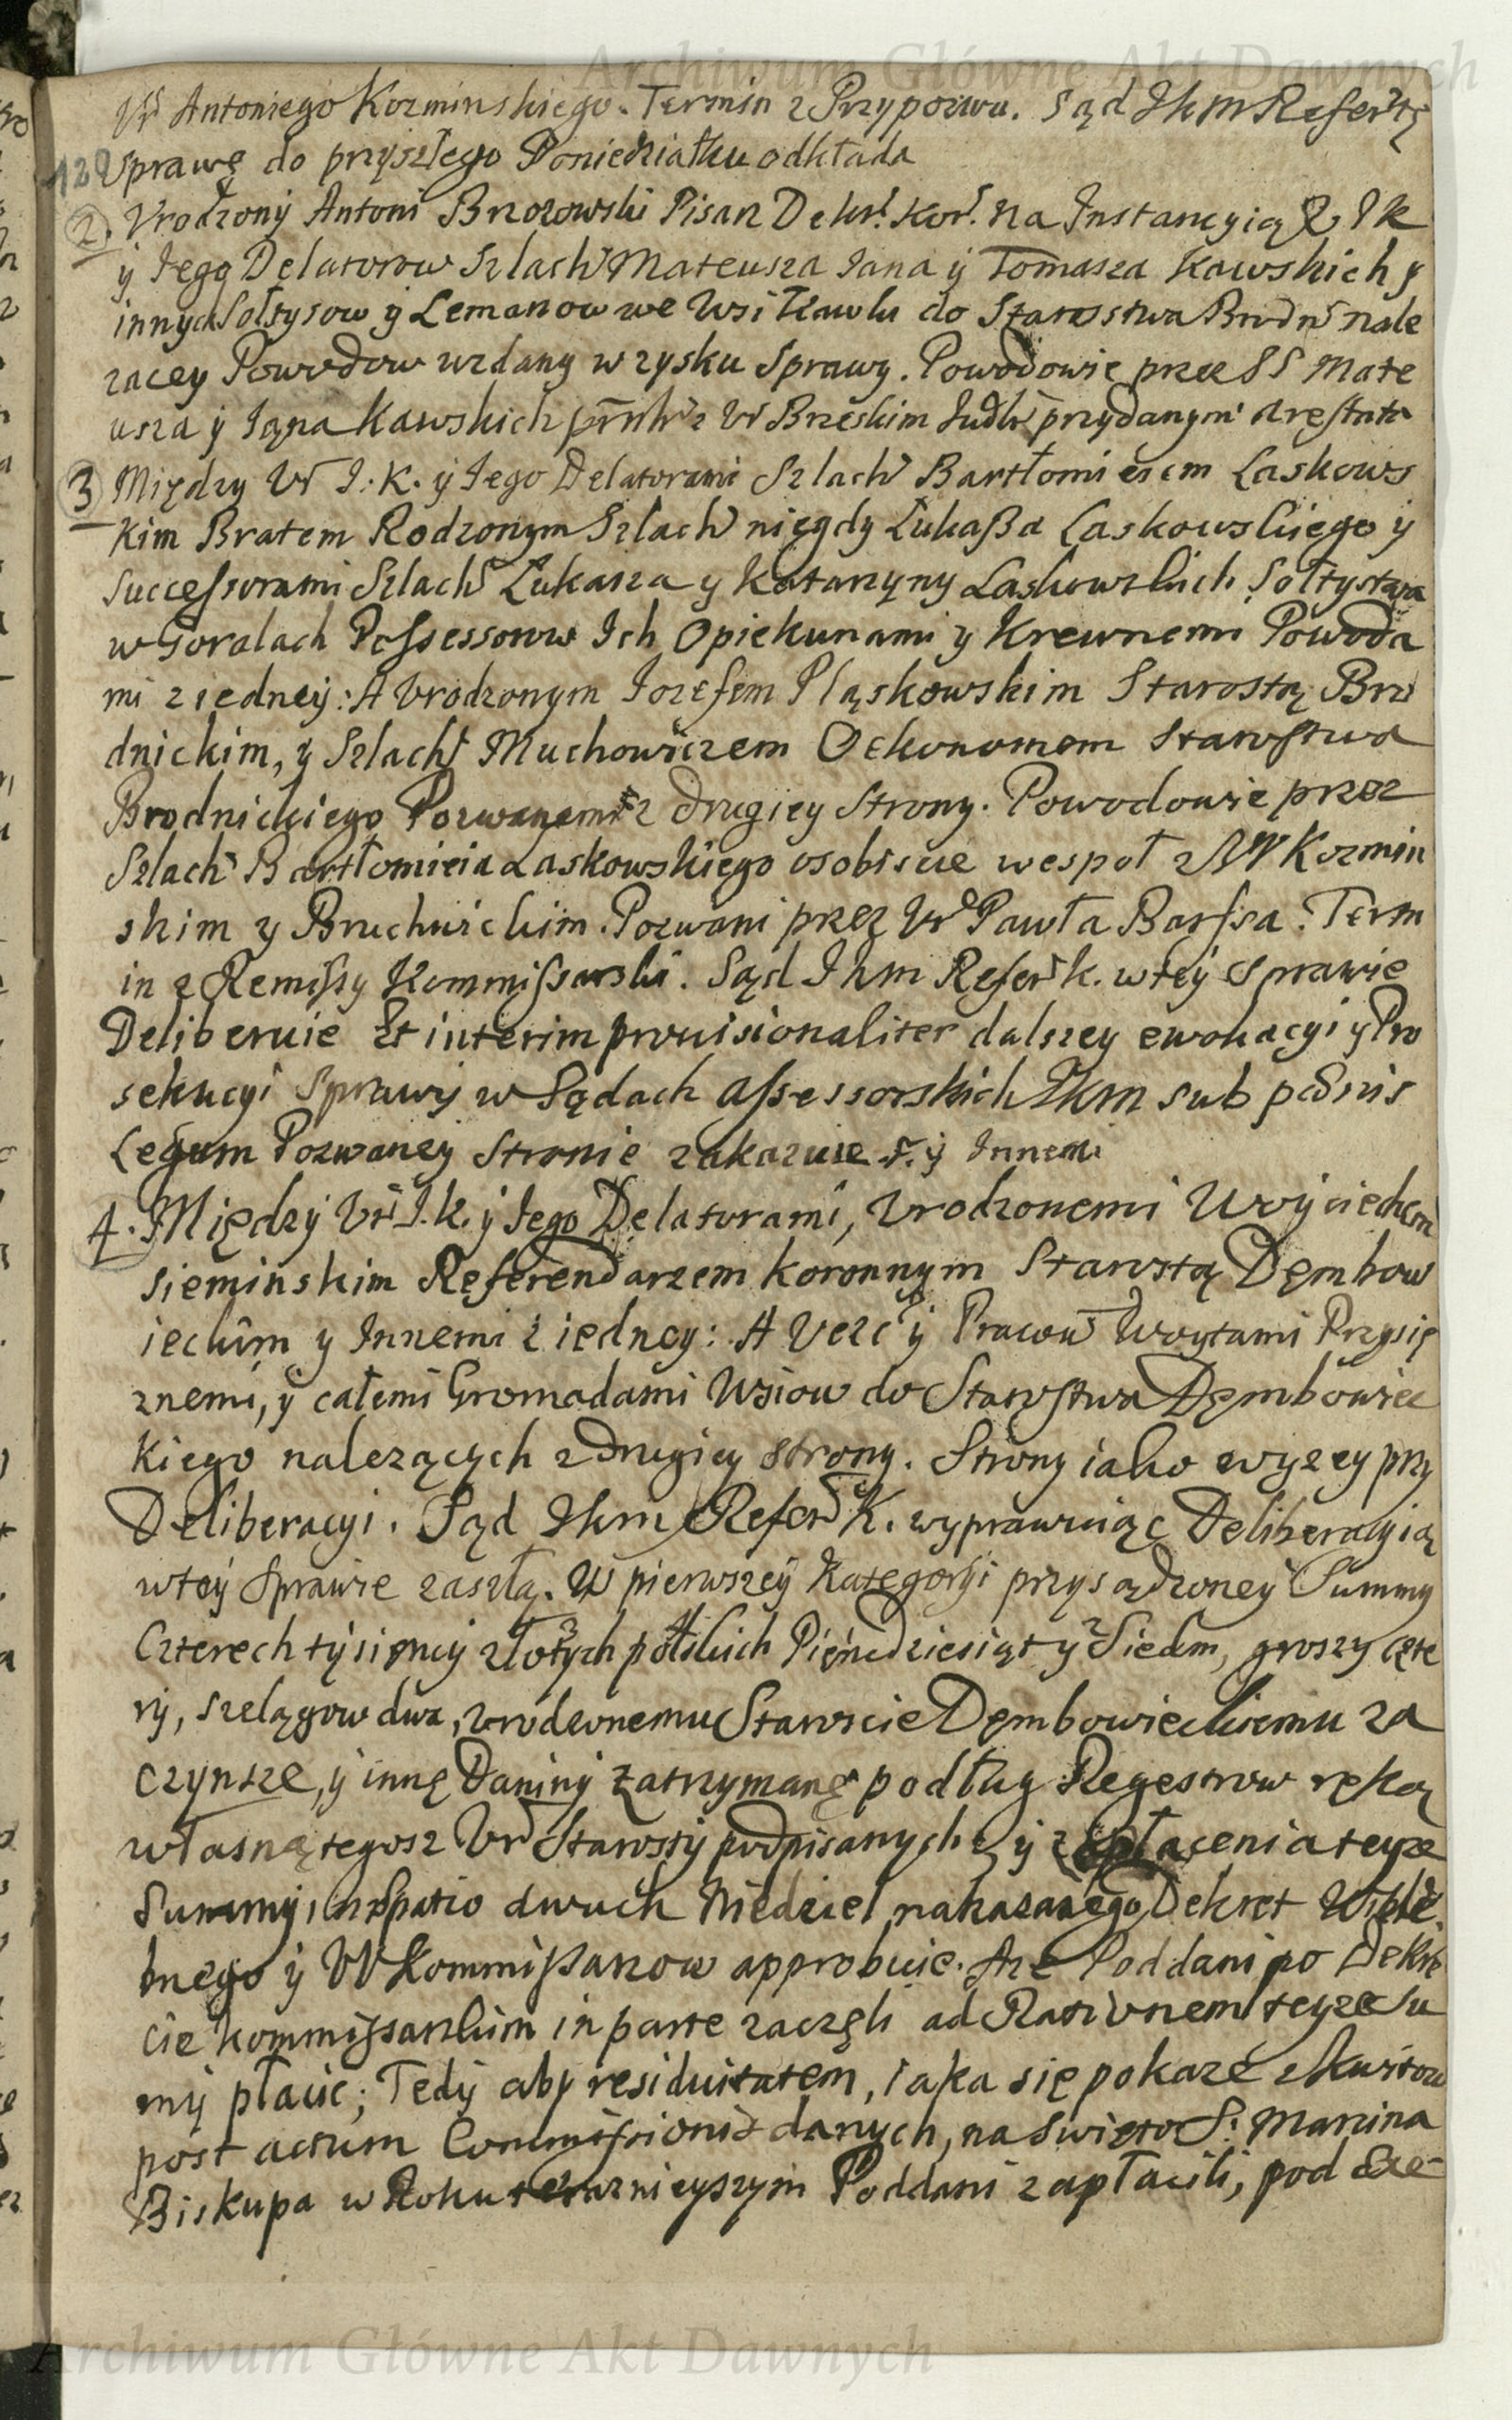 Archiwum Główne Akt Dawnych
Ur Antoniego Kozminskiego. Termin z Przypozwu. Sąd Jkm Refer
128 Sprawę do przyszłego Poniedziałku odkłada
2. Urodzony Antoni Brzozowski Pisarz Dekr. Kor. na Instancyią I K
y Jego Delatorow Szlach Mateusza Jana y Tomasza Kawskich y
innych Sołtysow y Lemanow we Wsi Kawlu do Starostwa Brodn nale
zacey Powodow wzdany w zysku Sprawy. Powodowie przez SS Mate
usza y Jana Kawskich z Ur Brzeskim przydanym
3 Między Ur J. K. y Jego Delatorami Szlach Bartłomieiem Laskows
kim Bratem Rodzonym Szlach niegdy Łukaßa Laskowskiego y
Successorami Szlach Łukasza y Katarzyny Laskowskich Sołtystwa
w Goralach Possessorow Ich Opiekunami y Krewnemi Powoda
mi z iedney: A Urodzonym Jozefem Pląskowskim Starostą Bro
dnickim, y Szlach Muchowiczem Oekonomem Starostwa
Brodnickiego Pozwanemi z drugiey Strony. Powodowie przez
Szlach Bartłomieia Laskowskiego osobiscie wespoł z UU Kozmin
skim y Bruchwickim. Pozwani przez Ur Pawła Barssa. Term
in z Remissy Kommissarski. Sąd Jkm Refer k. w tey Sprawie
Deliberuie Et interim prouisionaliter dalszey ewokacyi y Pro
sekucyi Sprawy w Sądach Assessorskich Jkm sub pænis
Legum Pozwaney Stronie zakazuie y Innemi
4. Między Ur J. k. y Jego Delatorami, Urodzonemi Woyciechem
Sieminskim Referendarzem koronnym Starostą Dęmbow
ieckim y Innemi z iedney: A Ucze y Pracow Woytami Przysię
znemi, y całemi Gromadami Wsiow do Starostwa Dęmbowiec
kiego nalezących z drugiey strony. Strony iako wyzey przy
Deliberacyi. Sąd Jkm Refer K. wyprawuiąc Deliberacyią
w tey Sprawie zaszłą. W pierwszey Kategoryi przysądzoney Summy
Czterech tysięncy złotych polskich Pięndziesiąt y Siedm, groszy czte
ry, szelągow dwa, Urodzonemu Staroscie Dęmbowieckiemu za
czynsze, y inne Daniny zatrzymane podług Regestrow ręką
własną tegosz Ur Starosty podpisanych, y zapłacenia teyze
Summy, in Spatio dwuch Niedziel nakazanego Dekret Wiele
bnego y UU Kommissarzow approbuie. Aze Poddani po Dekre
cie kommissarskim in parte zaczęli ad Rationem teyze Su
my płacic; Tedy aby residuitatem, iaka się pokaze z kwitow
post actum Commissionis danych, na Swięto S. Marcina
Biskupa w Roku teraznieyszym Poddani zapłacili, pod Exe-
Archiwum Główne Akt Dawnych